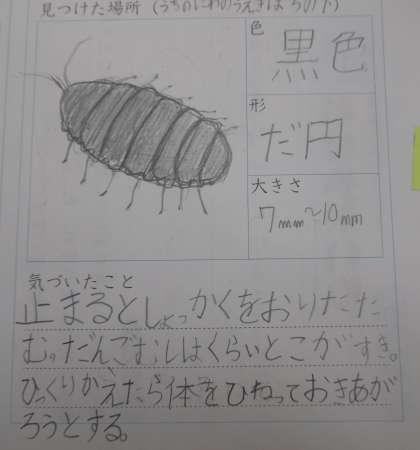 見つけた場所（うちのにわのうえきばちの下）
色
黒色
形
だ円
大きさ
7mm～10mm
気づいたこと
止まるとしょっかくをおりたた
む。だんごむしはくらいとこがすき。
ひっくりかえたら体をひねっておきあが
ろうとする。